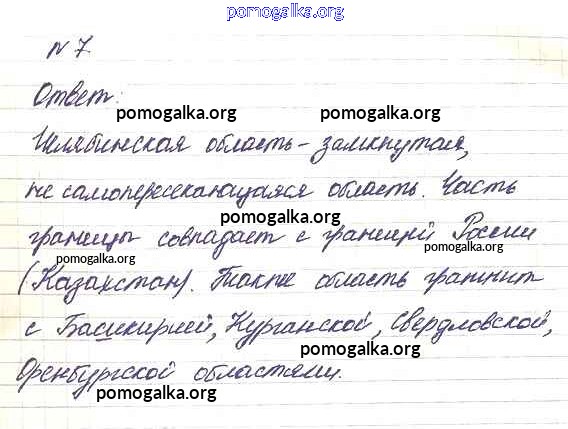 pomogalka.org
N 7.
Ответ:
pomogalka.org pomogalka.org
Челябинская область - замкнутая,
не самопересекающаяся область. Часть
pomogalka.org
границы совпадает с границей России
pomogalka.org pomogalka.org
(Казахстан). Также область граничит
с Башкирией, Курганской, Свердловской,
pomogalka.org
Оренбургской областями.
pomogalka.org